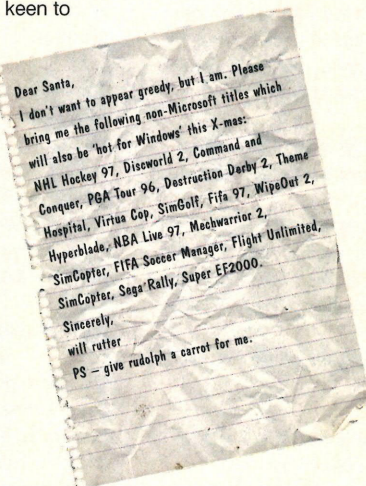 keen to
Dear Santa,
I don't want to appear greedy, but I am. Please
bring me the following non-Microsoft titles which
will also be 'hot for Windows' this X-mas:
NHL Hockey 97, Discworld 2, Command and
Conquer, PGA Tour 96, Destruction Derby 2, Theme
Hospital, Virtua Cop, SimGolf, Fifa 97, WipeOut 2,
Hyperblade, NBA Live 97, Mechwarrior 2,
SimCopter, FIFA Soccer Manager, Flight Unlimited,
SimCopter, Sega Rally, Super EF2000.
Sincerely,
will rutter
PS – give rudolph a carrot for me.